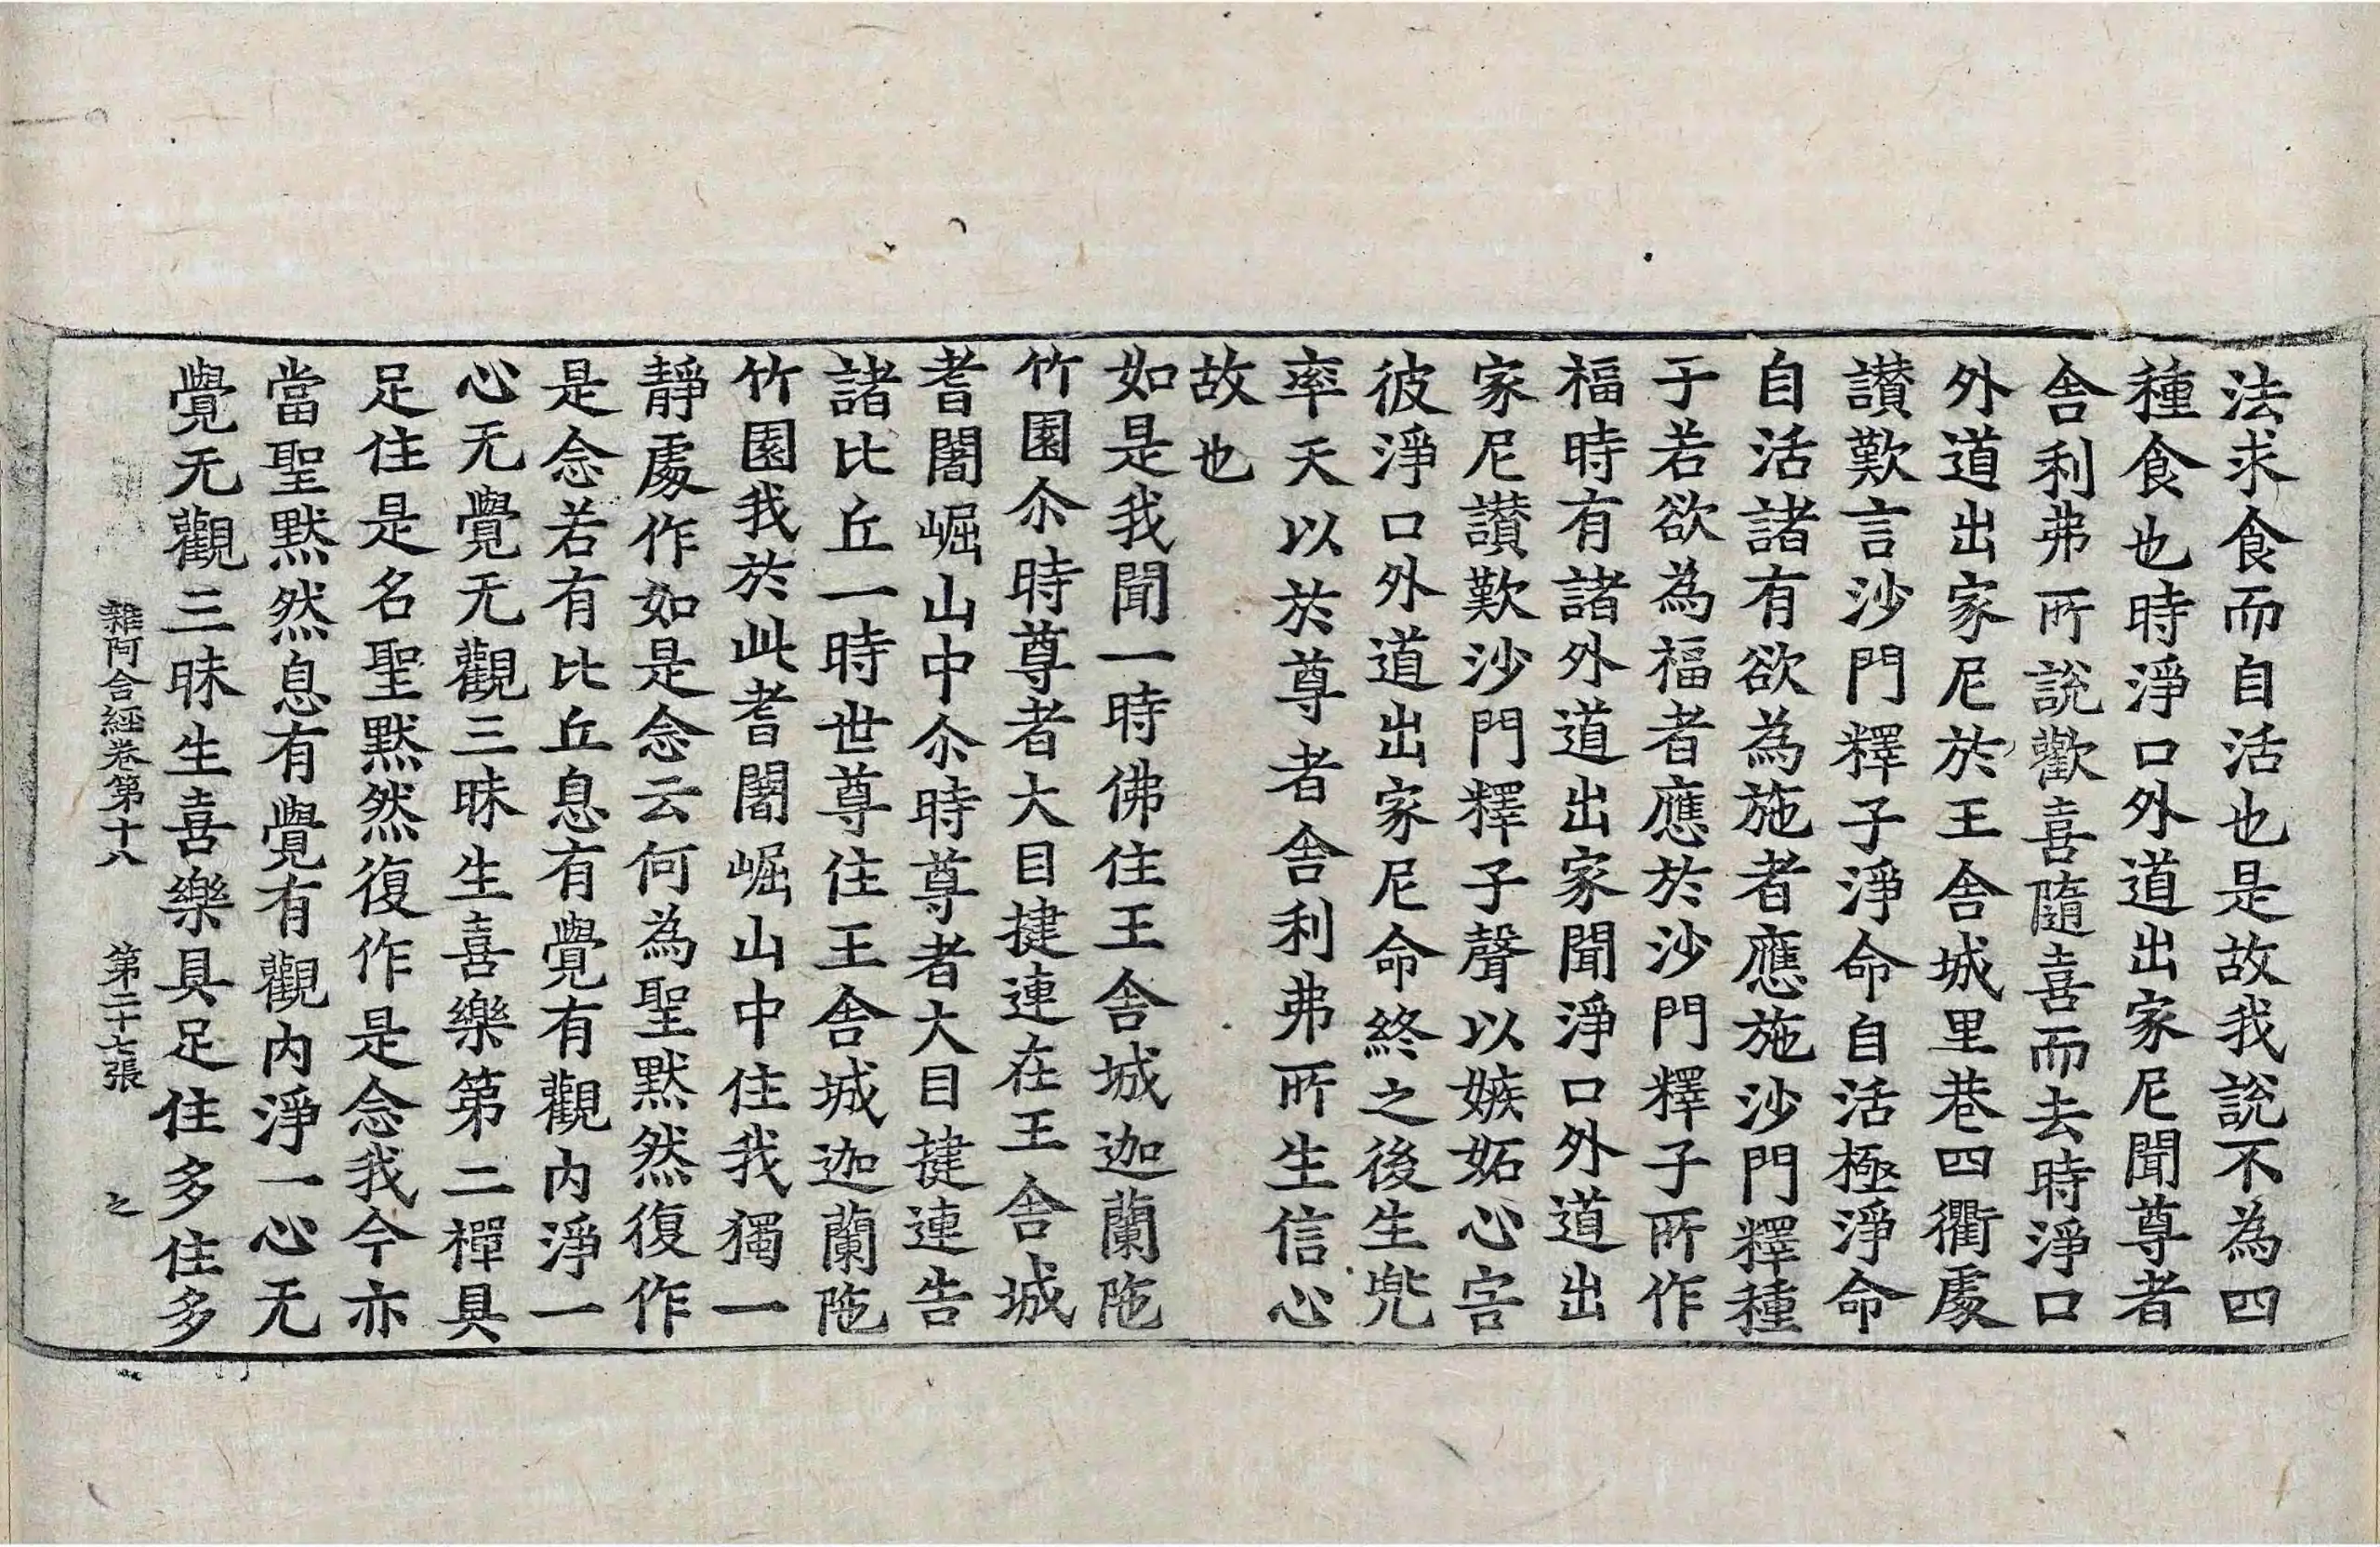 法求食而自活也是故我說不為四
種食也時淨口外道出家尼聞尊者
舎利弗所說歡喜隨喜而去時淨口
外道出家尼於王舎城里巷四衢處
讃歎言沙門釋子淨命自活極淨命
自活諸有欲為施者應施沙門釋種
子若欲為福者應於沙門釋子所作
福時有諸外道出家聞淨口外道出
家尼讃歎沙門釋子聲以嫉妬心害
彼淨口外道出家尼命終之後生兠
率天以於尊者舎利弗所生信心
故也
如是我聞一時佛住王舎城迦蘭陁
竹園尒時尊者大目揵連在王舎城
耆闍崛山中尒時尊者大目揵連告
諸比丘一時世尊住王舎城迦蘭陁
竹園我於此耆闍崛山中住我獨一
靜處作如是念云何為聖默然復作
是念若有比丘息有覺有觀內淨一
心无覺无觀三昧生喜樂第二禪具
足住是名聖默然復作是念我今亦
當聖默然息有覺有觀內淨一心无
覺无觀三昧生喜樂具足住多住多
雜阿含經卷第十八 第二十七張 之